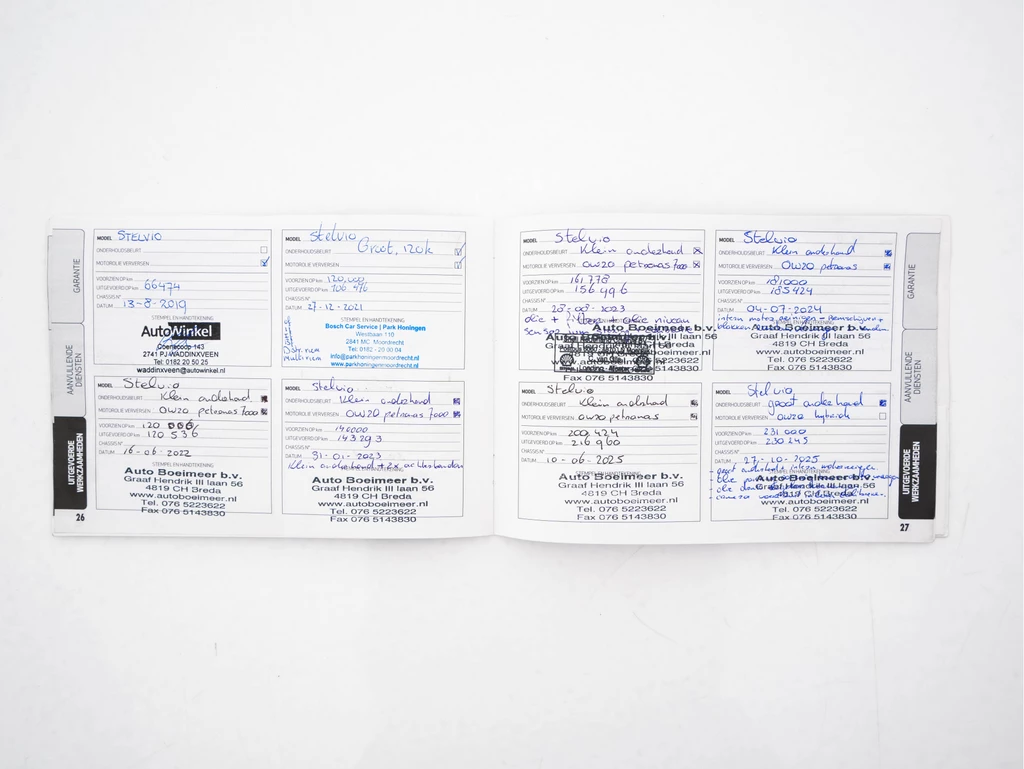 GARANTIE
AANVULLENDE
DIENSTEN
UITGEVOERDE
WERKZAAMHEDEN
26
MODEL STELVIO
ONDERHOUDSBEURT
MOTOROLIE VERVERSEN
VOORZIEN OP km
UITGEVOERD OP km 66474
CHASSIS N°
DATUM 13-8-2019
STEMPEL EN HANDTEKENING
AutoWinkel
Coenecoop 143
2741 PJ WADDINXVEEN
Tel: 0182 20 50 25
waddinxveen@autowinkel.nl
MODEL Stelvio
ONDERHOUDSBEURT Groot, 120k
MOTOROLIE VERVERSEN
VOORZIEN OP km 120,000
UITGEVOERD OP km
CHASSIS N°
DATUM 27-12-2021
STEMPEL EN HANDTEKENING
Bosch Car Service | Park Honingen
Westbaan 110
2841 MC Moordrecht
Tel: 0182 - 20 00 04
info@parkhoningenmoordrecht.nl
www.parkhoningenmoordrecht.nl
Distr. riem
Multi riem
MODEL Stelvio
ONDERHOUDSBEURT Klein onderhoud
MOTOROLIE VERVERSEN OW20 petronas 7000
VOORZIEN OP km 120
UITGEVOERD OP km 120.536
CHASSIS N°
DATUM 16-06-2022
STEMPEL EN HANDTEKENING
Auto Boeimeer b.v.
Graaf Hendrik III laan 56
4819 CH Breda
www.autoboeimeer.nl
Tel. 076 5223622
Fax 076 5143830
MODEL Stelvio
ONDERHOUDSBEURT Klein onderhoud
MOTOROLIE VERVERSEN OW20 petronas 7000
VOORZIEN OP km 140000
UITGEVOERD OP km 143293
CHASSIS N°
DATUM 31-01-2023
Klein onderhoud + 2x achterbanden
Auto Boeimeer b.v.
Graaf Hendrik III laan 56
4819 CH Breda
www.autoboeimeer.nl
Tel. 076 5223622
Fax 076 5143830
MODEL Stelvio
ONDERHOUDSBEURT Klein onderhoud
MOTOROLIE VERVERSEN OW20 petronas 7000
VOORZIEN OP km 161,778
UITGEVOERD OP km 156.496
CHASSIS N°
DATUM 28-08-2023
olie + olie niveau
sensor
Auto Boeimeer b.v.
Graaf Hendrik III laan 56
4819 CH Breda
www.autoboeimeer.nl
Tel. 076 5223622
Fax 076 5143830
MODEL Stelvio
ONDERHOUDSBEURT Klein onderhoud
MOTOROLIE VERVERSEN OW20 petronas
VOORZIEN OP km 181000
UITGEVOERD OP km 185424
CHASSIS N°
DATUM 04-07-2024
intern motor reinigen - remschijven +
blokken
Auto Boeimeer b.v.
Graaf Hendrik III laan 56
4819 CH Breda
www.autoboeimeer.nl
Tel. 076 5223622
Fax 076 5143830
MODEL Stelvio
ONDERHOUDSBEURT Klein onderhoud
MOTOROLIE VERVERSEN OW20 petronas
VOORZIEN OP km 200,424
UITGEVOERD OP km 216960
CHASSIS N°
DATUM 10-06-2025
STEMPEL EN HANDTEKENING
Auto Boeimeer b.v.
Graaf Hendrik III laan 56
4819 CH Breda
www.autoboeimeer.nl
Tel. 076 5223622
Fax 076 5143830
MODEL Stelvio
ONDERHOUDSBEURT groot onderhoud
MOTOROLIE VERVERSEN OW20 hybride
VOORZIEN OP km 231000
UITGEVOERD OP km 230245
CHASSIS N°
DATUM 27-10-2025
- groot onderhoud + intern motor reinigen
Auto Boeimeer b.v.
Graaf Hendrik III laan 56
4819 CH Breda
www.autoboeimeer.nl
Tel. 076 5223622
Fax 076 5143830
GARANTIE
AANVULLENDE
DIENSTEN
UITGEVOERDE
WERKZAAMHEDEN
27